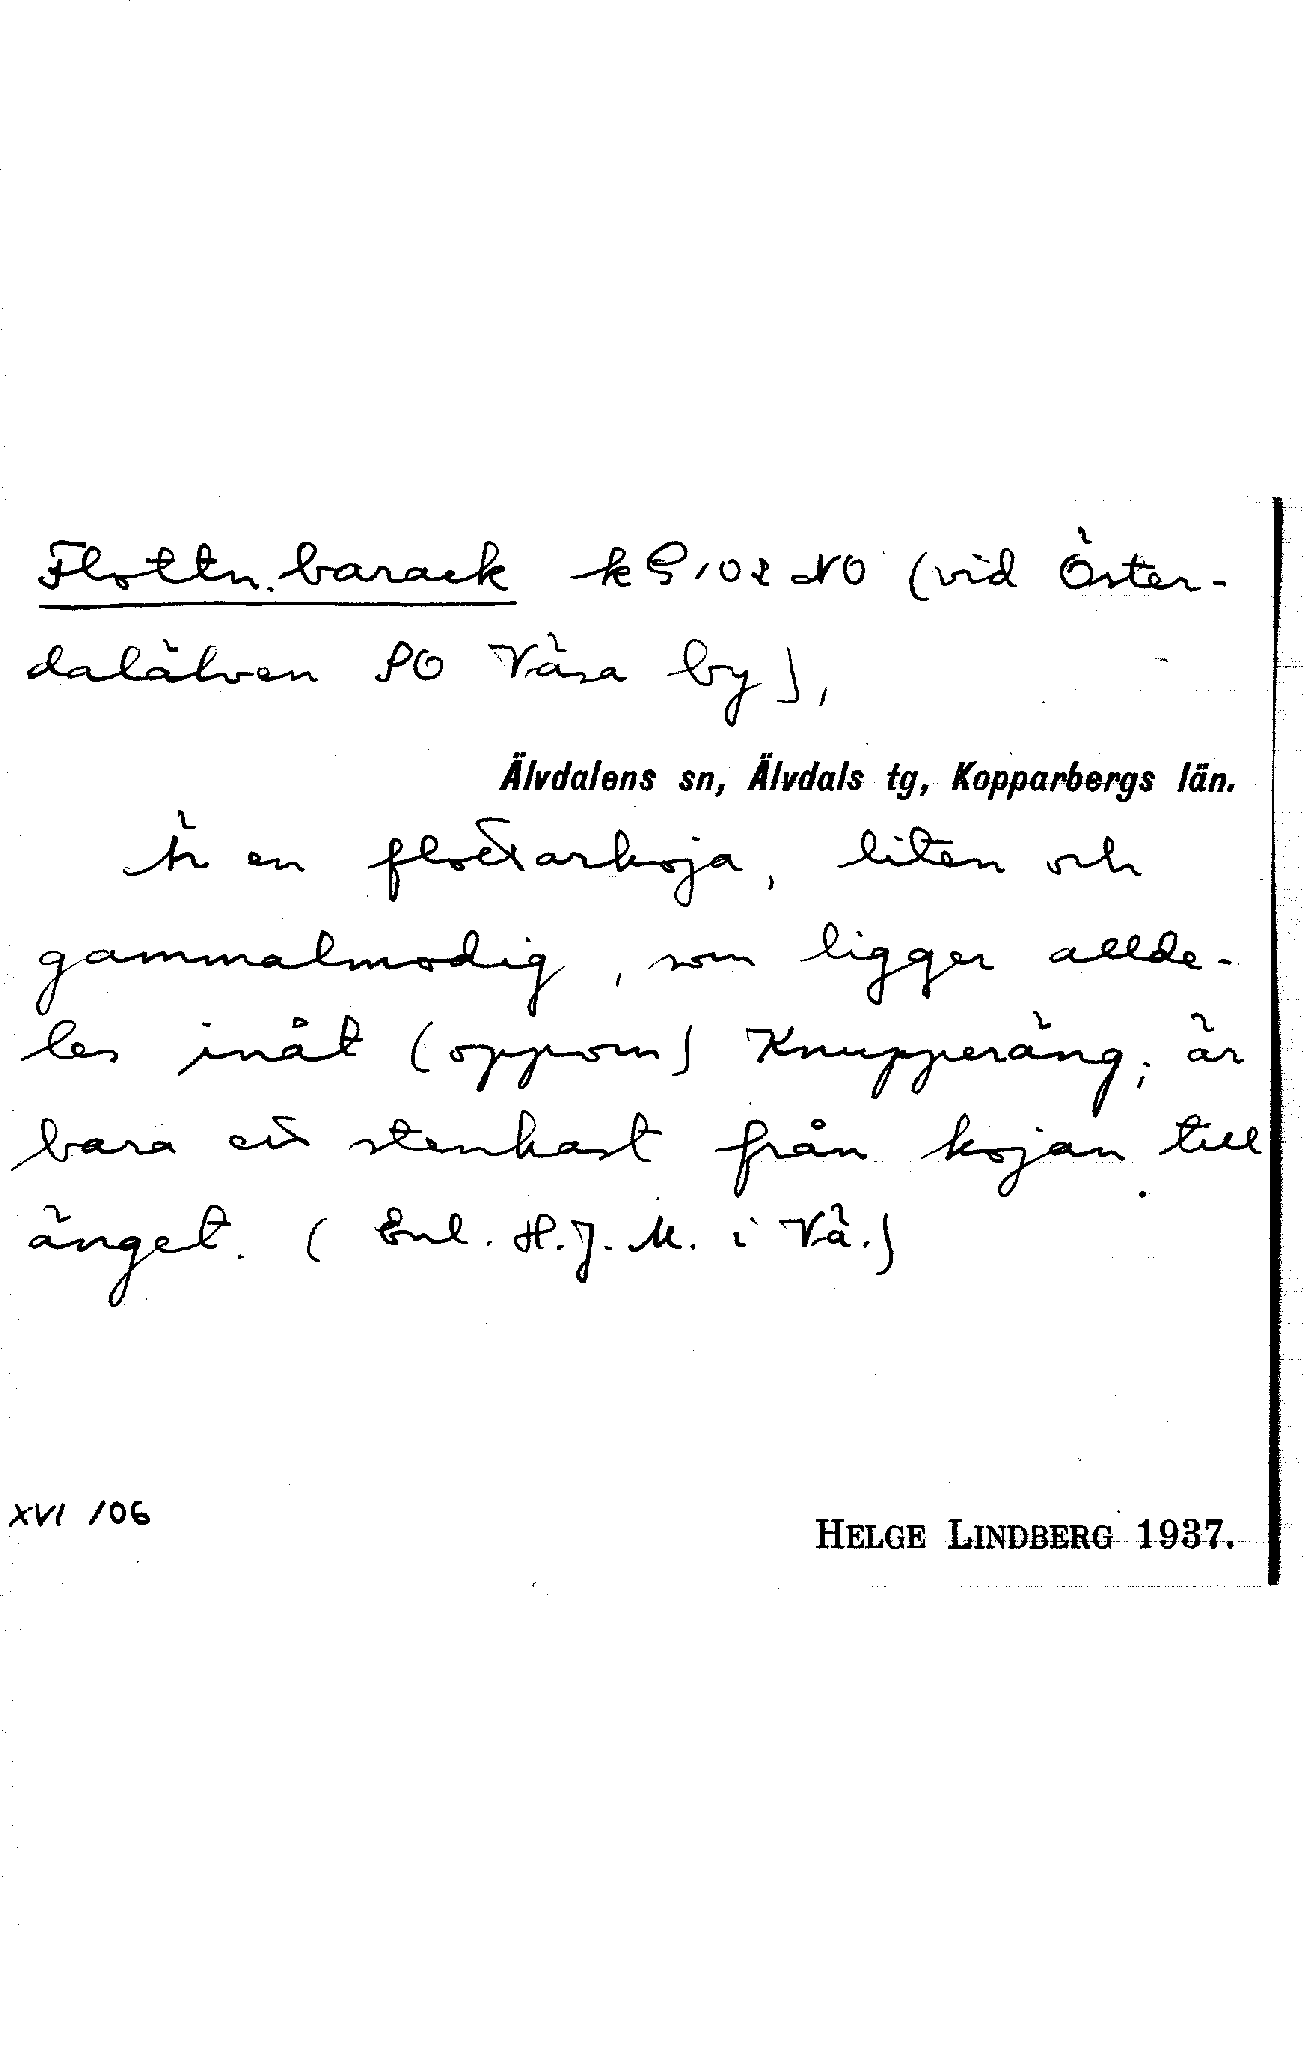 Flottn.barack k G 102 NO (vid Öster-
dalälven SO Våsa by),
Älvdalens sn, Älvdals tg, Kopparbergs län.
Är en flottarkoja, liten och
gammalmodig, som ligger allde-
les inåt (oppom) Knupperäng; är
bara ett stenkast från kojan till
änget. (Enl. H.J.M. i Vå.)
XVI /06
HELGE LINDBERG 1937.